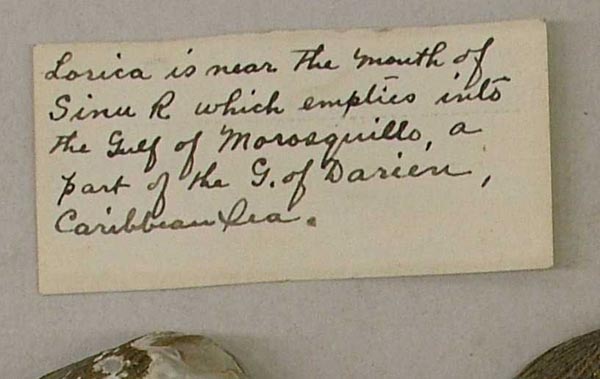 Lorica is near the mouth of
Sinu R which empties into
the Gulf of Morosquillo, a
part of the G. of Darien,
Caribbean Sea.